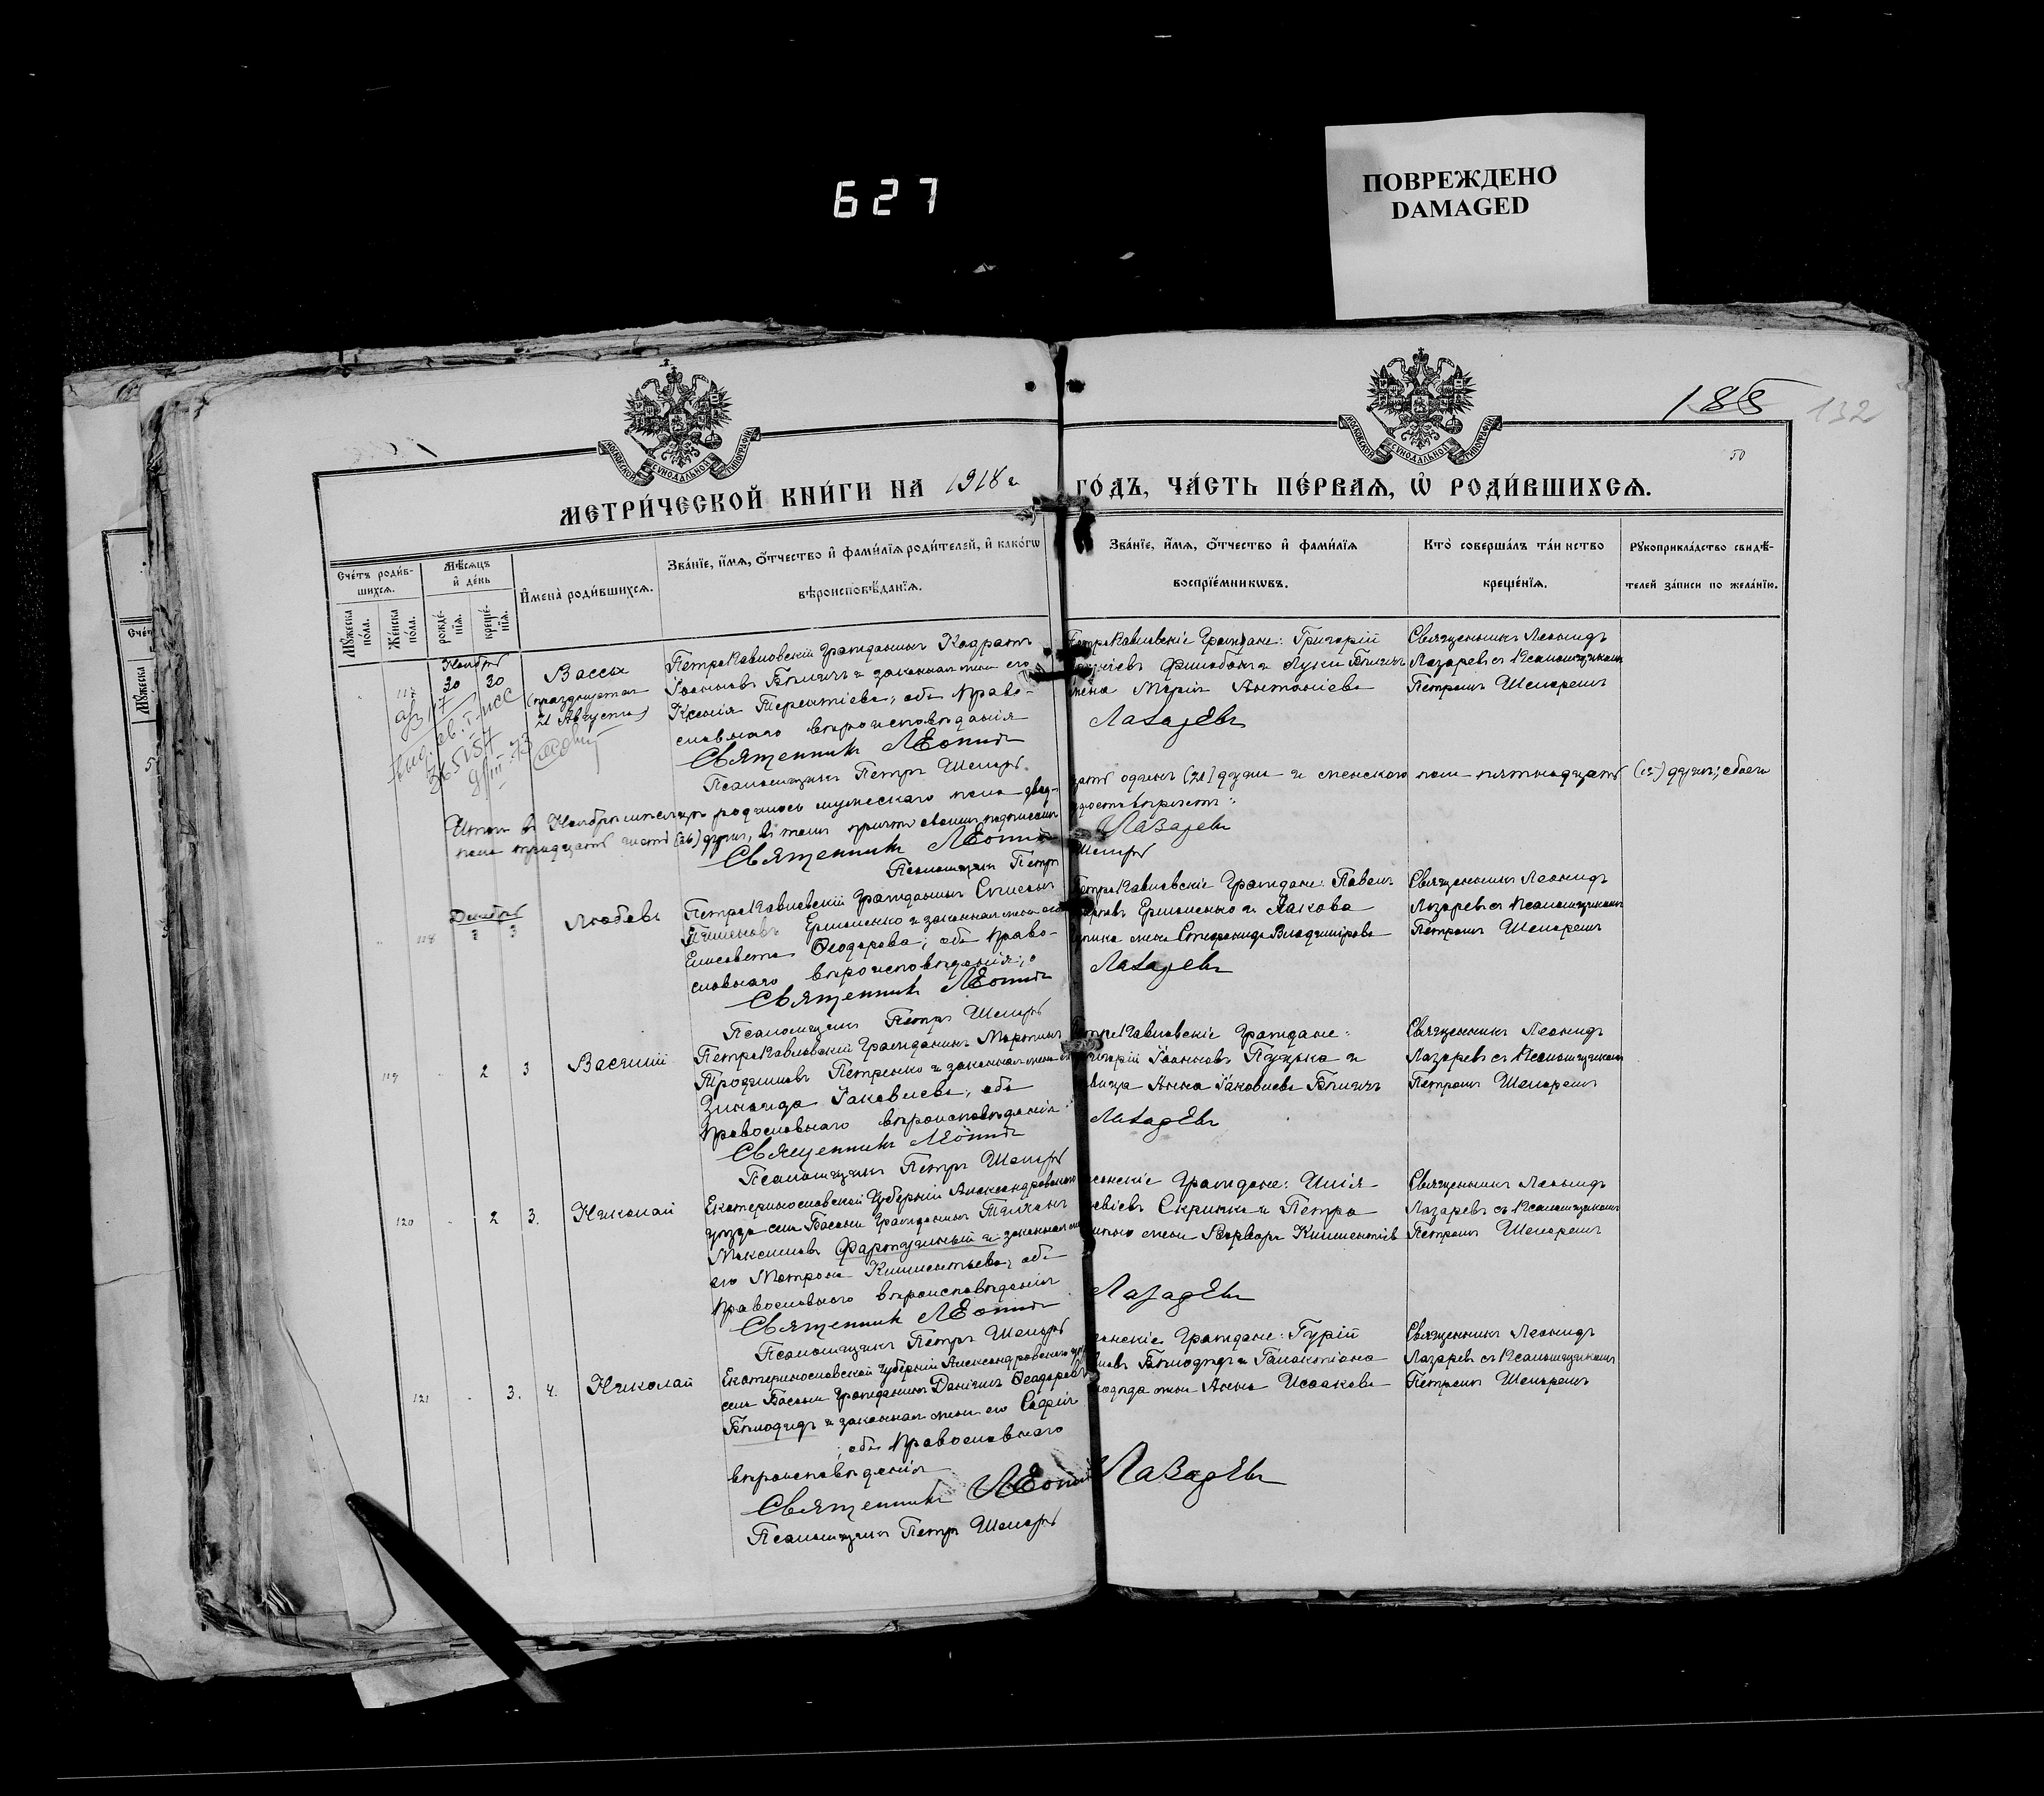 627
ПОВРЕЖДЕНО
DAMAGED
188
132
50
МОСКОВСКОЙ СѴНОДАЛЬНОЙ ТИПОГРАФІИ
МОСКОВСКОЙ СѴНОДАЛЬНОЙ ТИПОГРАФІИ
МЕТРИ́ЧЕСКОЙ КНИ́ГИ НА 1918 г ГО́ДЪ, ЧА́СТЬ ПЕ́РВАЯ, Ѡ҆ РОДИ́ВШИХСЯ.
Сче́тъ роди́в-
шихся.
Мꙋ́жеска по́ла.
Же́нска по́ла.
Мѣ́сяцъ и҆ де́нь
рожде́-
нїя.
креще́-
нїя.
И҆мена̀ роди́вшихся.
Зва́нїе, и҆́мя, ѻ҆́тчество и҆ фами́лїя роди́телей, и҆ како́гѡ
вѣроисповѣ́данїя.
Зва́нїе, и҆́мя, ѻ҆́тчество и҆ фами́лїя
воспрїе́мникѡвъ.
Кто̀ соверша́лъ та́инство
креще́нїя.
Рꙋкоприкла́дство свидѣ́-
телей за́писи по жела́нїю.
Ноябрь
117
20 20
Васса
(празднуется
21 Августа)
Петропавловскій гражданинъ Кодратъ
Іоанновъ Бѣличъ и законная жена его
Ксенія Терентіева; оба право-
славнаго вѣроисповѣданія
Священникъ Леонидъ
Псаломщикъ Петръ
Петропавловскіе Граждане: Григорій
и Луки Бѣличъ
жена Марія Антоніева
Лазаревъ
Священникъ Леонидъ
Лазаревъ съ Псаломщикомъ
Петромъ
Итого въ Ноябрѣ мѣсяцѣ родилось мужеского пола двад-
цать одинъ (21) душа и женского пола пятнадцать (15) душъ; обоего
пола тридцать шесть (36) душъ, въ томъ причтъ своимъ подписомъ
Священникъ Леонидъ Лазаревъ
Псаломщикъ Петръ
Декабрь
118
2 3
Любовь
Петропавловскій Гражданинъ
Ермоленко и законная жена его
Елисавета Ѳеодорова; оба право-
славнаго вѣроисповѣданія
Священникъ Леонидъ
Псаломщикъ Петръ
Петропавловскіе Граждане: Павелъ
Ермоленко и Іакова
жена Стефанида Владимірова
Лазаревъ
Священникъ Леонидъ
Лазаревъ съ Псаломщикомъ
Петромъ
119
2 3
Василий
Петропавловскій Гражданинъ Мартинъ
Трофимовъ Петренко и законная жена его
Зинаида Іаковлева, оба
православнаго вѣроисповѣданія
Священникъ Леонидъ
Псаломщикъ Петръ
Петропавловскіе Граждане:
Григорій Іоанновъ и
девица Анна Іаковлева Бѣличъ
Лазаревъ
Священникъ Леонидъ
Лазаревъ съ Псаломщикомъ
Петромъ
120
2 3.
Николай
Екатеринославской Губерніи Александровскаго
уѣзда села Басани Гражданинъ
Максимовъ и законная жена
его Матрона Климентьева, оба
православнаго вѣроисповѣданія
Священникъ Леонидъ
Псаломщикъ Петръ
Граждане: Илія
Скрипки и Петра
жена Варвара Климентіев
Лазаревъ
Священникъ Леонидъ
Лазаревъ съ Псаломщикомъ
Петромъ
121
3. 4.
Николай
Екатеринославской Губерніи Александровскаго
села Басани Гражданинъ Даніилъ Ѳеодоровъ
Бѣлодѣдъ и законная жена его Софія
; оба православнаго
вѣроисповѣданія
Священникъ Леонидъ
Псаломщикъ Петръ
Граждане: Гурій
Бѣлодѣдъ и Галактіона
жена Анна Исаакова
Лазаревъ
Священникъ Леонидъ
Лазаревъ съ Псаломщикомъ
Петромъ